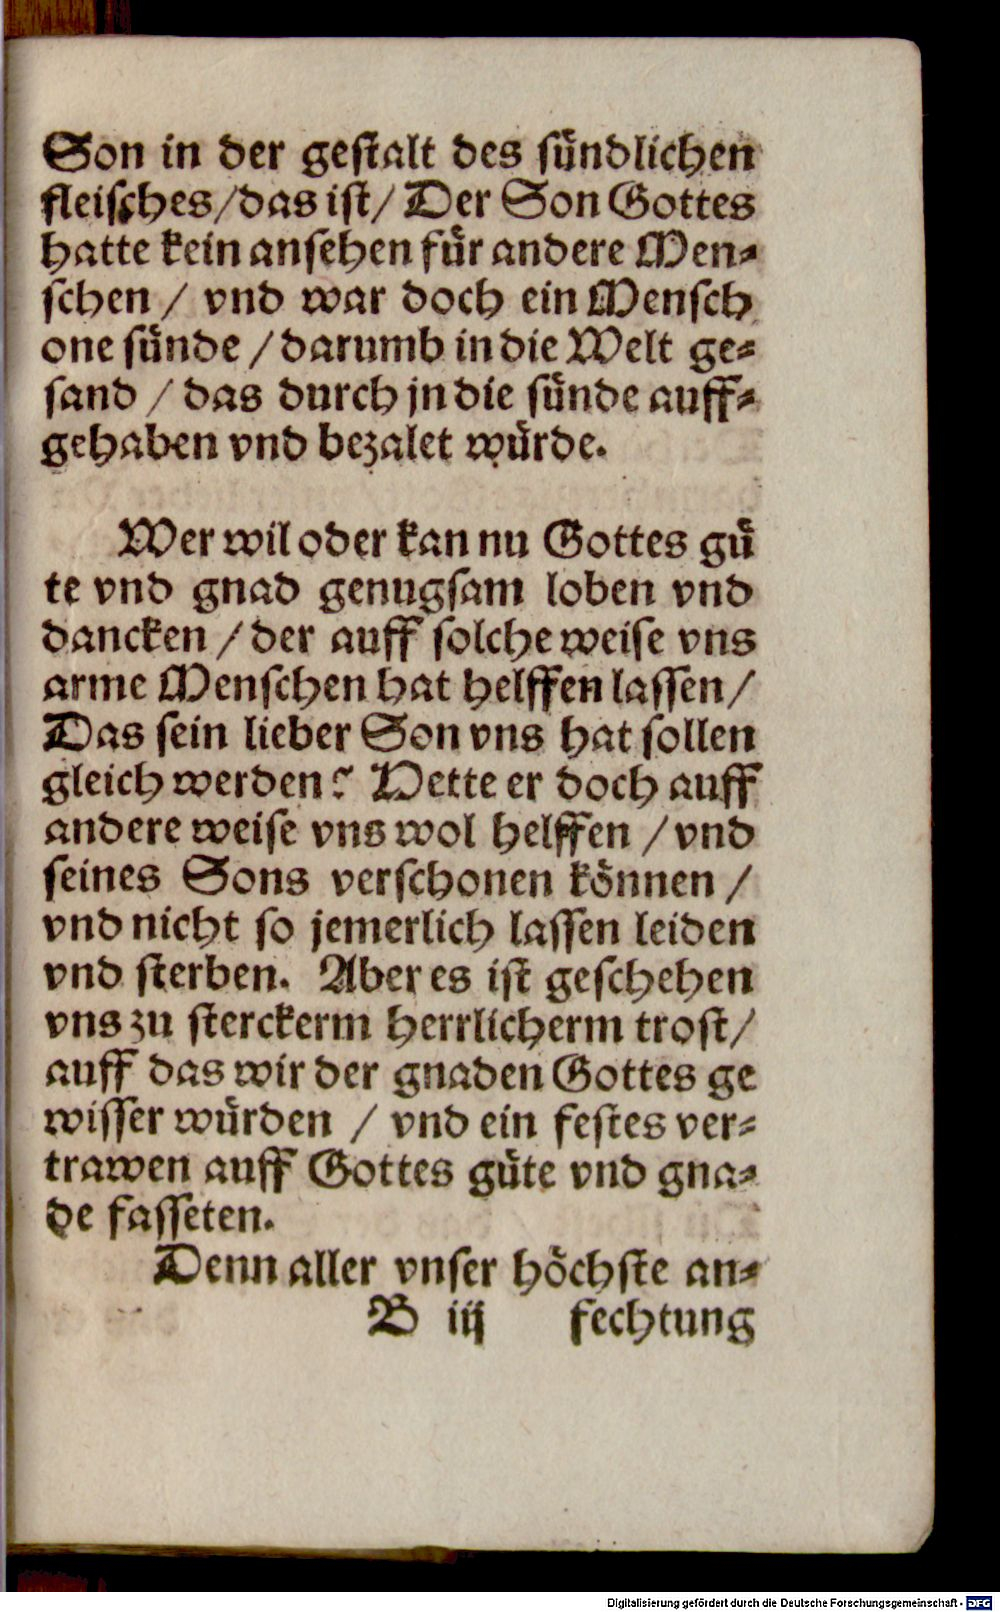 Son in der gestalt des sündlichen
fleisches/das ist/ Der Son Gottes
hatte kein ansehen für andere Men-
schen / vnd war doch ein Mensch
one sünde / darumb in die Welt ge-
sand / das durch jn die sünde auff-
gehaben vnd bezalet würde.
Wer wil oder kan nu Gottes gü
te vnd gnad genugsam loben vnd
dancken / der auff solche weise vns
arme Menschen hat helffen lassen/
Das sein lieber Son vns hat sollen
gleich werden? Hette er doch auff
andere weise vns wol helffen / vnd
seines Sons verschonen können /
vnd nicht so jemerlich lassen leiden
vnd sterben. Aber es ist geschehen
vns zu sterckerm herrlicherm trost/
auff das wir der gnaden Gottes ge
wisser würden / vnd ein festes ver-
trawen auff Gottes güte vnd gna-
de fasseten.
Denn aller vnser höchste an-
B iij fechtung
Digitalisierung gefördert durch die Deutsche Forschungsgemeinschaft - DFG